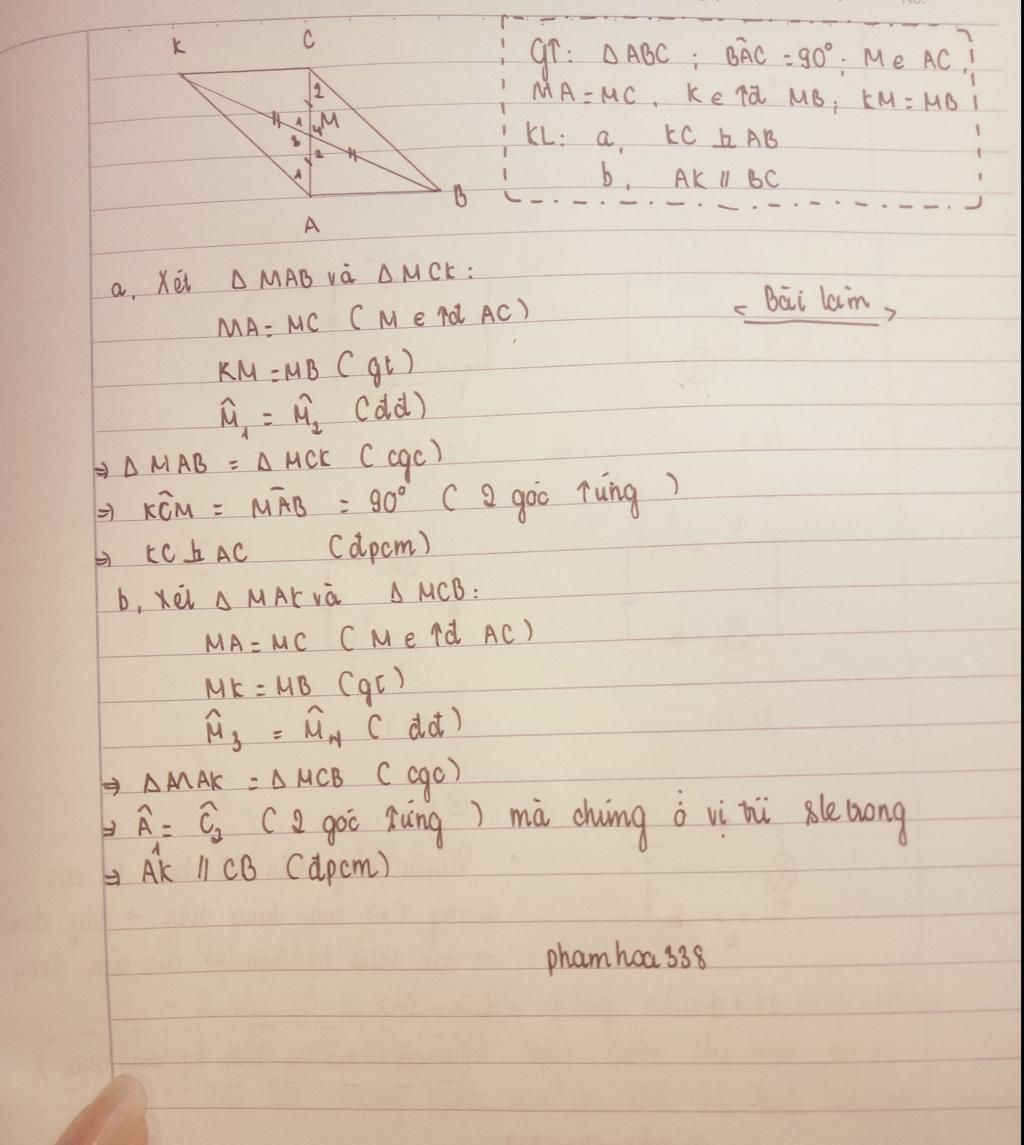 K C
2
1 M
3 4
2
1
B
A
GT: Δ ABC ; BÂC = 90°; M ∈ AC,
MA = MC, K ∈ tđ MB; KM = MB
KL: a, KC ⊥ AB
b, AK // BC
< Bài làm >
a, Xét Δ MAB và Δ MCK:
MA = MC ( M ∈ tđ AC )
KM = MB ( gt )
M̂₁ = M̂₂ ( đđ )
⇒ Δ MAB = Δ MCK ( cgc )
⇒ KĈM = MÂB = 90° ( 2 góc tứng )
⇒ KC ⊥ AC (đpcm)
b, Xét Δ MAK và Δ MCB:
MA = MC ( M ∈ tđ AC )
MK = MB ( gt )
M̂₃ = M̂₄ ( đđ )
⇒ Δ MAK = Δ MCB ( cgc )
⇒ Â₁ = Ĉ₂ ( 2 góc tứng ) mà chúng ở vị trí sle trong
⇒ AK // CB (đpcm)
phamhoa338